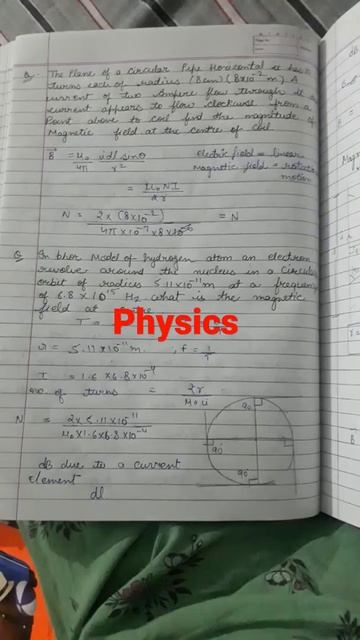 Q. The Plane of a circular Pipe Horizontal it has
turns each of radius (8cm) (8x10⁻² m) A
current of two Ampere flow through it
current appears to flow clockwise from a
Point above to coil find the magnitude of
Magnetic field at the centre of coil
B = μ₀ idl sinθ
4π r²
electric field = linear
Magnetic field = rotation
motion
= μ₀ NI
2r
N = 2 x (8x10⁻²) = N
4π x 10⁻⁷ x 8 x
Q. In bhor Model of hydrogen atom an electron
revolve around the nucleus in a circular
orbit of radius 5.11x10⁻¹¹ m at a frequency
of 6.8 x 10¹⁵ Hz what is the magnetic
field at
T =
Physics
r = 5.11x10⁻¹¹ m. , f = 1/T
T = 1.6 x 6.8 x 10⁻⁴
no. of turns = 2r
μ₀
N = 2 x 5.11 x 10⁻¹¹
μ₀ x 1.6 x 6.8 x 10⁻⁴
90
90
90
dB due to a current
element
dl